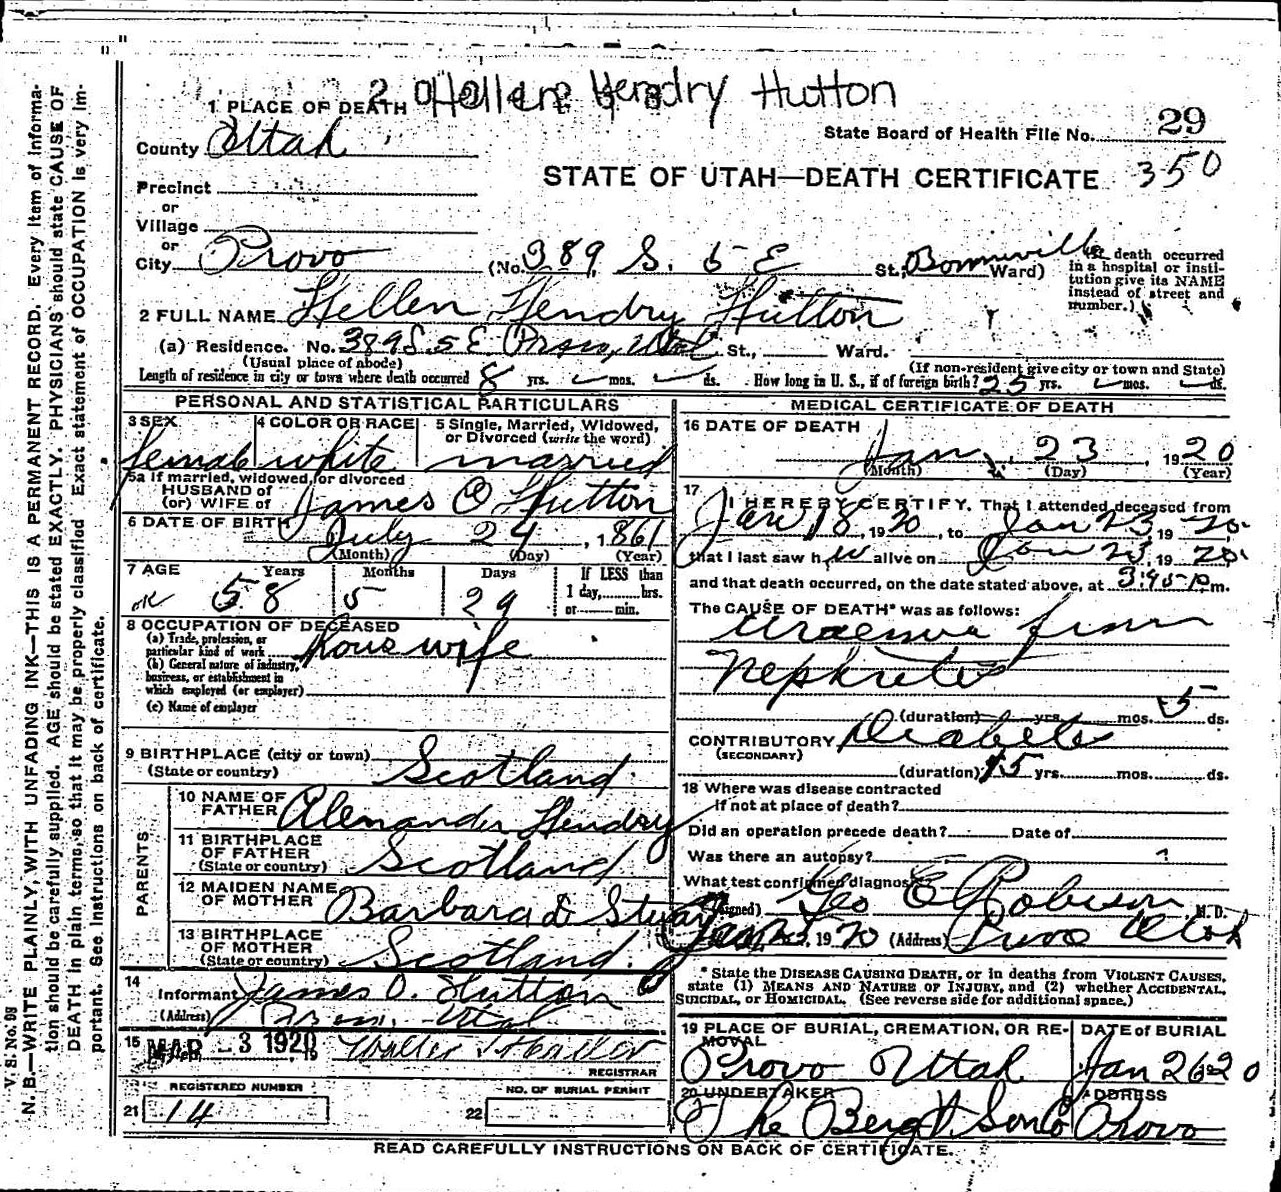 Hellen Hendry Hutton
1 PLACE OF DEATH
State Board of Health File No. 29
County Utah
STATE OF UTAH—DEATH CERTIFICATE 350
Precinct
or
Village
or
City Provo (No. 389 S. 5 E St.; Bonneville Ward)
(If death occurred in a hospital or insti-
tution give its NAME
instead of street and
number.)
2 FULL NAME Hellen Hendry Hutton
(a) Residence. No. 389 S. 5 E Provo, Utah St., Ward.
(Usual place of abode) (If non-resident give city or town and State)
Length of residence in city or town where death occurred 8 yrs. mos. ds. How long in U. S., if of foreign birth? 25 yrs. mos. ds.
PERSONAL AND STATISTICAL PARTICULARS
3 SEX female
4 COLOR OR RACE white
5 Single, Married, Widowed,
or Divorced (write the word)
married
5a If married, widowed, or divorced
HUSBAND of
(or) WIFE of James O Hutton
6 DATE OF BIRTH July 24, 1861
(Month) (Day) (Year)
7 AGE Years Months Days If LESS than
1 day, hrs.
or min.
ok 58 5 29
8 OCCUPATION OF DECEASED
(a) Trade, profession, or
particular kind of work housewife
(b) General nature of industry,
business, or establishment in
which employed (or employer)
(c) Name of employer
9 BIRTHPLACE (city or town)
(State or country) Scotland
PARENTS
10 NAME OF
FATHER Alexander Hendry
11 BIRTHPLACE
OF FATHER
(State or country) Scotland
12 MAIDEN NAME
OF MOTHER Barbara Stuart
13 BIRTHPLACE
OF MOTHER
(State or country) Scotland
14
Informant James O. Hutton
(Address) Provo, Utah
15 MAR -3 1920 Walter
REGISTRAR
REGISTERED NUMBER
21 14
NO. OF BURIAL PERMIT
22
MEDICAL CERTIFICATE OF DEATH
16 DATE OF DEATH
Jan. 23, 1920
(Month) (Day) (Year)
17
I HEREBY CERTIFY, That I attended deceased from
Jan 18, 1920, to Jan 23, 1920
that I last saw her alive on Jan 23, 1920
and that death occurred, on the date stated above, at 3:45 p m.
The CAUSE OF DEATH* was as follows:
Uraemia from
Nephritis
(duration) yrs. mos. 5 ds.
CONTRIBUTORY Diabetes
(SECONDARY)
(duration) 15 yrs. mos. ds.
18 Where was disease contracted
if not at place of death?
Did an operation precede death? Date of
Was there an autopsy?
What test confirmed diagnosis?
(Signed) Geo E Robison M. D.
Jan 25, 1920 (Address) Provo Utah
* State the DISEASE CAUSING DEATH, or in deaths from VIOLENT CAUSES,
state (1) MEANS AND NATURE OF INJURY, and (2) whether ACCIDENTAL,
SUICIDAL, or HOMICIDAL. (See reverse side for additional space.)
19 PLACE OF BURIAL, CREMATION, OR RE-
MOVAL
Provo Utah
DATE of BURIAL
Jan 26 20
20 UNDERTAKER
The Berg & Sons Co
ADDRESS
Provo
READ CAREFULLY INSTRUCTIONS ON BACK OF CERTIFICATE.
V. S. No. 98
N. B.—WRITE PLAINLY, WITH UNFADING INK—THIS IS A PERMANENT RECORD. Every item of informa-
tion should be carefully supplied. AGE should be stated EXACTLY. PHYSICIANS should state CAUSE OF
DEATH in plain terms, so that it may be properly classified. Exact statement of OCCUPATION is very im-
portant. See instructions on back of certificate.